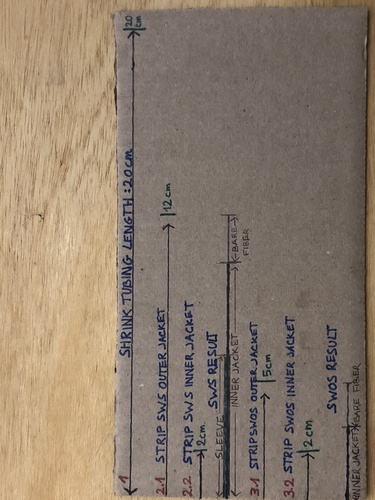 1 SHRINK TUBING LENGTH: 20cm 20 cm
2.1 STRIP SWS OUTER JACKET 12cm
2.2 STRIP SWS INNER JACKET
2cm.
SWS RESULT
SLEEVE
INNER JACKET BARE FIBER
3.1 STRIP SWOS OUTER JACKET
5cm
3.2 STRIP SWOS INNER JACKET
2cm
SWOS RESULT
INNER JACKET BARE FIBER